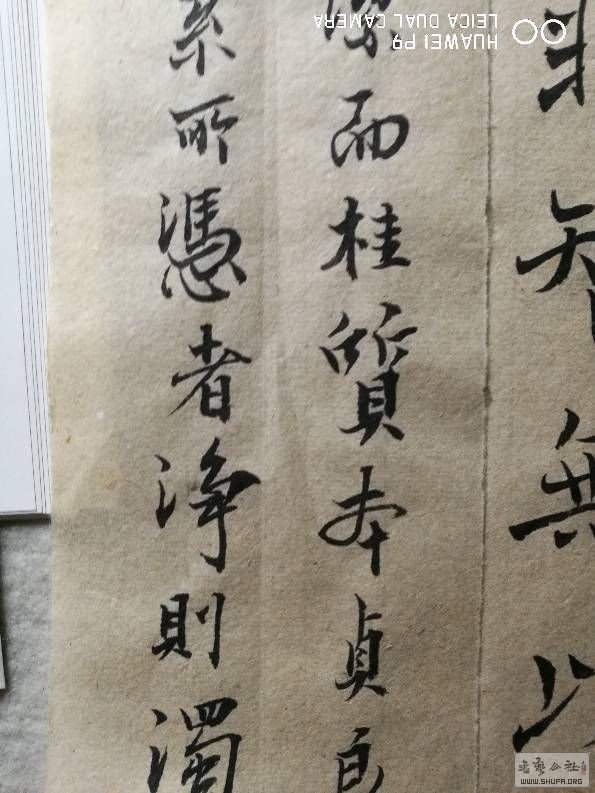 智無
而桂質本貞
所憑者淨則濁
HUAWEI P9
LEICA DUAL CAMERA
書藝公社
WWW.SHUFA.ORG